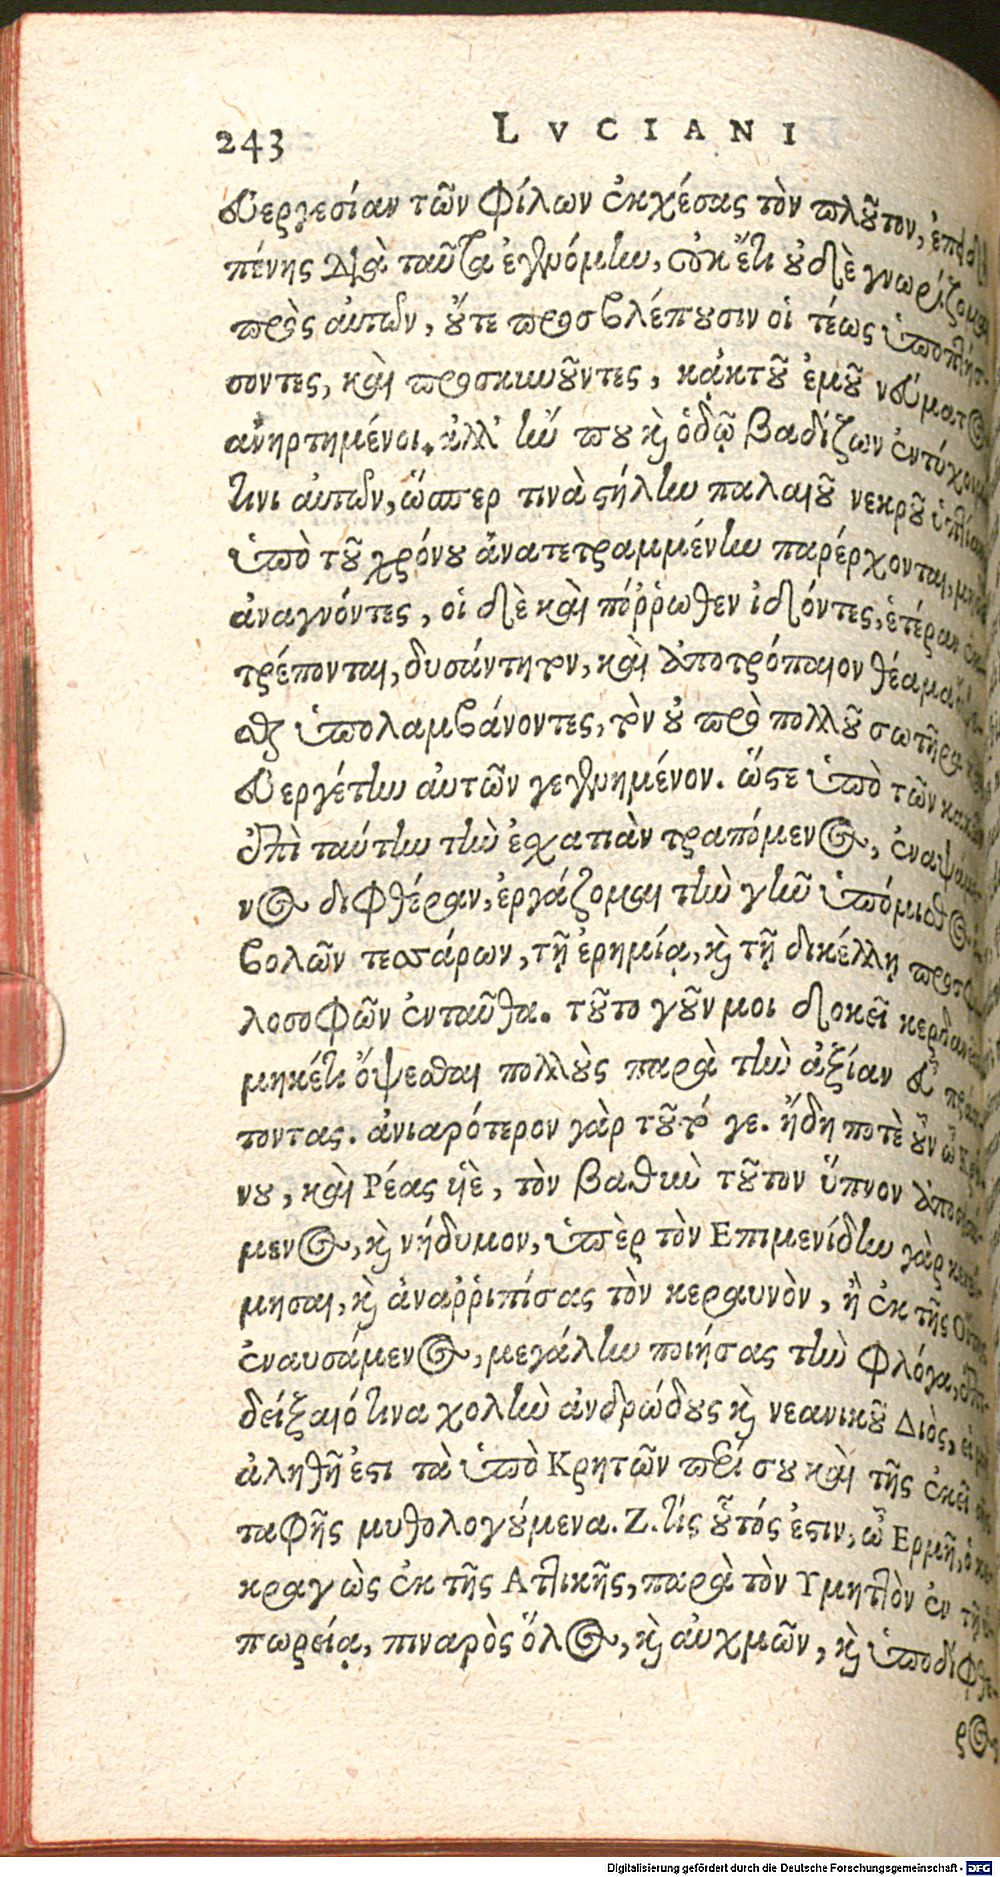 243 LVCIANI
εὐεργεσίαν τῶν φίλων ἐκχέσας τὸν πλοῦτον, ἐπειδὴ
πένης διὰ ταῦτα ἐγενόμην, οὐκ ἔτι οὐδὲ γνωρίζομαι
πρὸς αὐτῶν, οὔτε προσβλέπουσιν οἱ τέως ὑποπτήσ-
σοντες, καὶ προσκυνοῦντες, κἀκ τοῦ ἐμοῦ νεύματος
ἀνηρτημένοι. ἀλλ' ἤν που καὶ ὁδῷ βαδίζων ἐντύχοιμι
τινὶ αὐτῶν, ὥσπερ τινὰ στήλην παλαιοῦ νεκροῦ ὑπτίαν
ὑπὸ τοῦ χρόνου ἀνατετραμμένην παρέρχονται, μηδὲ
ἀναγνόντες, οἱ δὲ καὶ πόῤῥωθεν ἰδόντες, ἑτέραν ἐκ-
τρέπονται, δυσάντητον, καὶ ἀποτρόπαιον θέαμα
σθαι ὑπολαμβάνοντες, τὸν οὐ πρὸ πολλοῦ σωτῆρα καὶ
εὐεργέτην αὐτῶν γεγενημένον. ὥστε ὑπὸ τῶν κακῶν
ἐπὶ ταύτην τὴν ἐσχατιὰν τραπόμενος, ἐναψάμε-
νος διφθέραν, ἐργάζομαι τὴν γῆν ὑπόμισθος ὀ-
βολῶν τεσσάρων, τῇ ἐρημίᾳ, καὶ τῇ δικέλλῃ προσφι-
λοσοφῶν ἐνταῦθα. τοῦτο γοῦν μοι δοκεῖ κερδανεῖν
μηκέτι ὄψεσθαι πολλοὺς παρὰ τὴν ἀξίαν εὖ πράτ-
τοντας. ἀνιαρότερον γὰρ τοῦτό γε. ἤδη ποτὲ οὖν ὦ Κρό-
νου, καὶ Ρέας υἱὲ, τὸν βαθὺν τοῦτον ὕπνον ἀποσεισά-
μενος, καὶ νήδυμον, ὑπὲρ τὸν Επιμενίδην γὰρ κεκοί-
μησαι, καὶ ἀναῤῥιπίσας τὸν κεραυνὸν, ἢ ἐκ τῆς Οἴτης
ἐναυσάμενος, μεγάλην ποιήσας τὴν φλόγα, ἐπι-
δείξαιό τινα χολὴν ἀνδρώδους καὶ νεανικοῦ Διὸς, εἰ μὴ
ἀληθῆ ἐστι τὰ ὑπὸ Κρητῶν περί σου καὶ τῆς ἐκεῖ σῆς
ταφῆς μυθολογούμενα. Ζ. τίς οὗτός ἐστιν, ὦ Ερμῆ, ὁ κε-
κραγὼς ἐκ τῆς Αττικῆς, παρὰ τὸν Υμηττὸν ἐν τῇ ὑ-
πωρείᾳ, πιναρὸς ὅλος, καὶ αὐχμῶν, καὶ ὑποδίφθε-
ρος
Digitalisierung gefördert durch die Deutsche Forschungsgemeinschaft - DFG